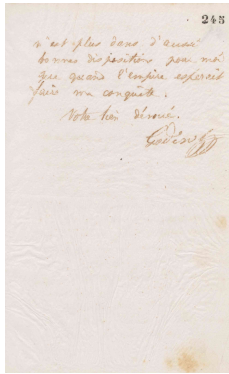 245
n'est plus dans d'aussi
bonnes dispositions pour moi
que quand l'empire espérait
faire ma conquête.
Votre bien dévoué.